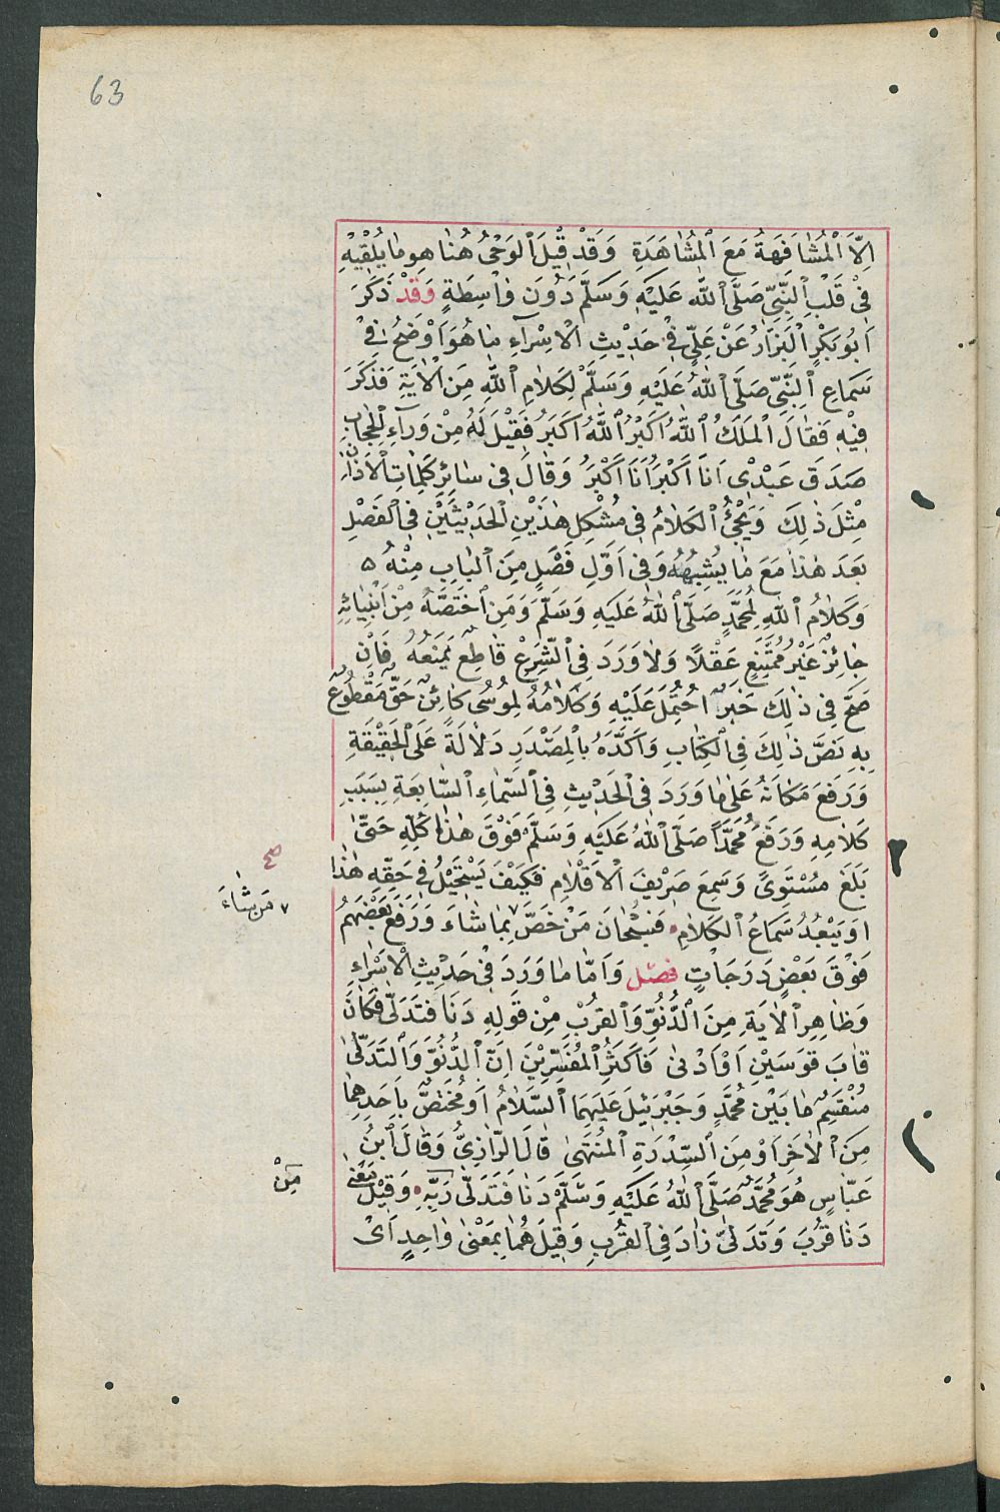 63
اِلَّا الْمُشَافَهَةُ مَعَ الْمُشَاهَدَةِ وَقَدْ قِيْلَ الْوَحْىُ هُنَا هو مَا يُلْقِيْهِ
فِىْ قَلْبِ النَّبِىِّ صَلَّى اللّٰهُ عَلَيْهِ وَسَلَّمَ دُوْنَ وَاسِطَةٍ وَقَدْ ذَكَرَ
اَبُو بَكْرٍ الْبَزَّارُ عَنْ عَلِىٍّ فِىْ حَدِيْثِ الْاِسْرَاءِ مَا هُوَ اَوْضَحُ فِىْ
سَمَاعِ النَّبِىِّ صَلَّى اللّٰهُ عَلَيْهِ وَسَلَّمَ لِكَلَامِ اللّٰهِ مِنَ الْاٰيَةِ فَذَكَرَ
فِيْهِ فَقَالَ الْمَلَكُ اللّٰهُ اَكْبَرُ اللّٰهُ اَكْبَرُ فَقِيْلَ لَهُ مِنْ وَرَاءِ الْحِجَابِ
صَدَقَ عَبْدِىْ اَنَا اَكْبَرُ اَنَا اَكْبَرُ وَقَالَ فِى سَائِرِ كَلِمَاتِ الْاَذَانِ
مِثْلَ ذٰلِكَ وَيَجْىءُ الْكَلَامُ فِى مُشْكِلِ هٰذَيْنِ الْحَدِيْثَيْنِ فِى الْفَصْلِ
بَعْدَ هٰذَا مَعَ مَا يُشْبِهُهُ وَفِى اَوَّلِ فَصْلٍ مِنَ الْبَابِ مِنْهُ ه
وَكَلَامُ اللّٰهِ لِمُحَمَّدٍ صَلَّى اللّٰهُ عَلَيْهِ وَسَلَّمَ وَمَنِ اخْتَصَّهُ مِنْ اَنْبِيَائِهِ
جَائِزٌ غَيْرُ مُمْتَنِعٍ عَقْلًا وَلَا وَرَدَ فِى الشَّرْعِ قَاطِعٌ يَمْنَعُهُ فَاِنْ
صَحَّ فِى ذٰلِكَ خَبَرٌ احْتُمِلَ عَلَيْهِ وَكَلَامُهُ لِمُوسٰى كَائِنٌ حَقٌّ مَقْطُوْعٌ
بِهِ نَصَّ ذٰلِكَ فِى الْكِتَابِ وَاَكَّدَهُ بِالْمَصْدَرِ دَلَالَةً عَلَى الْحَقِيْقَةِ
وَرَفَعَ مَكَانَهُ عَلٰى مَا وَرَدَ فِى الْحَدِيْثِ فِى السَّمَاءِ السَّابِعَةِ بِسَبَبِ
كَلَامِهِ وَرَفَعَ مُحَمَّدًا صَلَّى اللّٰهُ عَلَيْهِ وَسَلَّمَ فَوْقَ هٰذَا كُلِّهِ حَتّٰى
بَلَغَ مُسْتَوًى وَسَمِعَ صَرِيْفَ الْاَقْلَامِ فَكَيْفَ يَسْتَحِيْلُ فِى حَقِّهِ هٰذَا
اَوْ يَبْعُدُ سَمَاعُ الْكَلَامِ فَسُبْحَانَ مَنْ خَصَّ بِمَا شَاءَ وَرَفَعَ بَعْضَهُمْ
مَنْ شَاءَ
فَوْقَ بَعْضٍ دَرَجَاتٍ فصل وَاَمَّا مَا وَرَدَ فِىْ حَدِيْثِ الْاِسْرَاءِ
وَظَاهِرِ الْاٰيَةِ مِنَ الدُّنُوِّ وَالْقُرْبِ مِنْ قَوْلِهِ دَنَا فَتَدَلّٰى فَكَانَ
قَابَ قَوْسَيْنِ اَوْ اَدْنٰى فَاَكْثَرُ الْمُفَسِّرِيْنَ اِنَّ الدُّنُوَّ وَالتَّدَلِّىَ
مُنْقَسِمٌ مَا بَيْنَ مُحَمَّدٍ وَجَبْرَئِيْلَ عَلَيْهِمَا السَّلَامُ اَوْ مُخْتَصٌّ بِاَحَدِهِمَا
مِنَ الْاٰخَرِ اَوْ مِنَ السِّدْرَةِ الْمُنْتَهٰى قَالَ الرَّازِىُّ وَقَالَ ابْنُ
عَبَّاسٍ هُوَ مُحَمَّدٌ صَلَّى اللّٰهُ عَلَيْهِ وَسَلَّمَ دَنَا فَتَدَلّٰى رَبِّهِ وَقِيْلَ مَعْنٰى
مِنْ
دَنَا قَرُبَ وَتَدَلّٰى زَادَ فِى الْقُرْبِ وَقِيْلَ هُمَا بِمَعْنًى وَاحِدٍ اَىْ